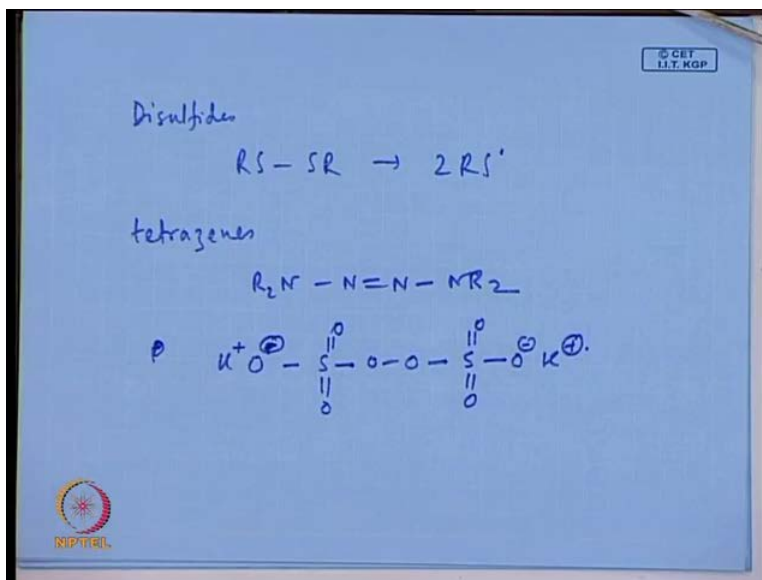 © CET
I.I.T. KGP
Disulfides
RS – SR → 2 RS·
tetrazenes
R₂N – N = N – NR₂
P K⁺ O⊖ – S(=O)(=O) – O – O – S(=O)(=O) – O⊖ K⊕.
NPTEL